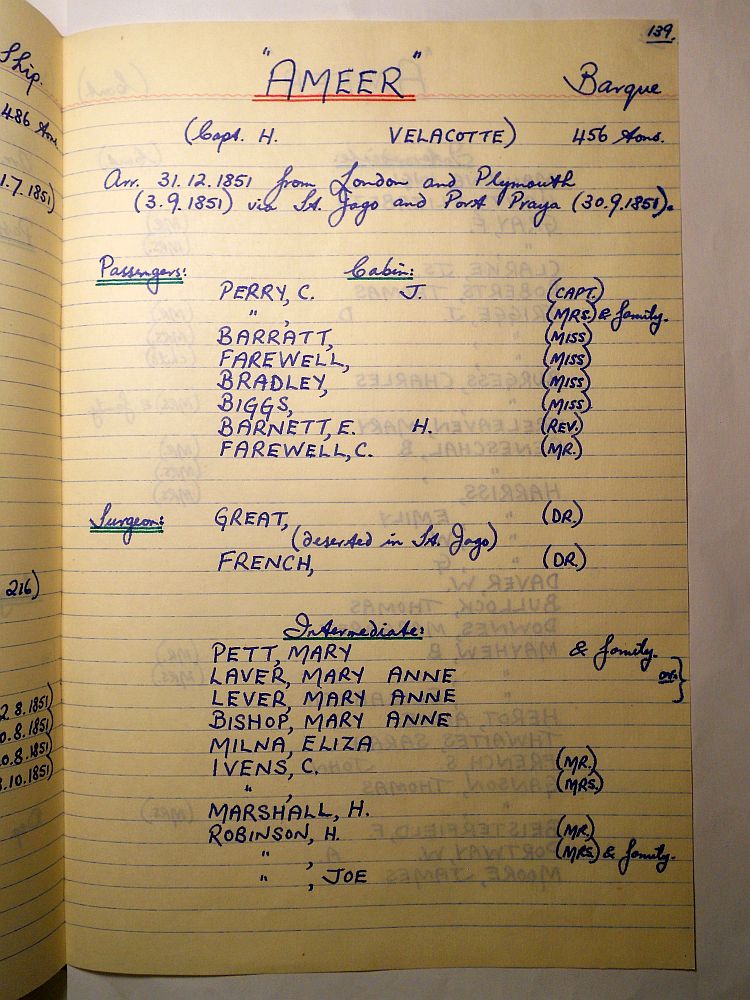 139.
"AMEER" Barque
(Capt. H. VELACOTTE) 456 tons.
Arr. 31.12.1851 from London and Plymouth
(3.9.1851) via St. Jago and Port Praya (30.9.1851).
Passengers: Cabin:
PERRY, C. J. (CAPT.)
" , (MRS.) & family.
BARRATT, (MISS)
FAREWELL, (MISS)
BRADLEY, (MISS)
BIGGS, (MISS)
BARNETT, E. H. (REV.)
FAREWELL, C. (MR.)
Surgeon: GREAT, (DR.)
(deserted in St. Jago)
FRENCH, (DR.)
Intermediate:
PETT, MARY & family.
LAVER, MARY ANNE
LEVER, MARY ANNE or.
BISHOP, MARY ANNE
MILNA, ELIZA
IVENS, C. (MR.)
" , (MRS.)
MARSHALL, H.
ROBINSON, H. (MR.)
" , (MRS.) & family.
" , JOE
Ship.
486 tons.
1.7.1851)
216)
2.8.1851)
0.8.1851)
0.8.1851)
.10.1851)